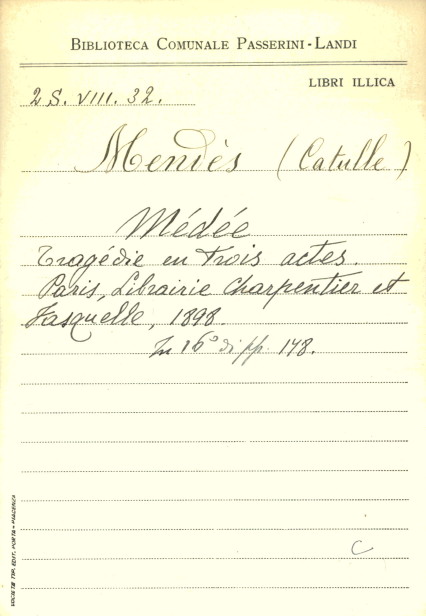 BIBLIOTECA COMUNALE PASSERINI-LANDI
LIBRI ILLICA
2 S. VIII. 32.
Mendès (Catulle)
Médée
Tragédie en trois actes.
Paris, Librairie Charpentier et
Fasquelle, 1898.
In 16° di pp. 148.
C
SOCIETÀ TIP. EDIT. PORTA - PIACENZA